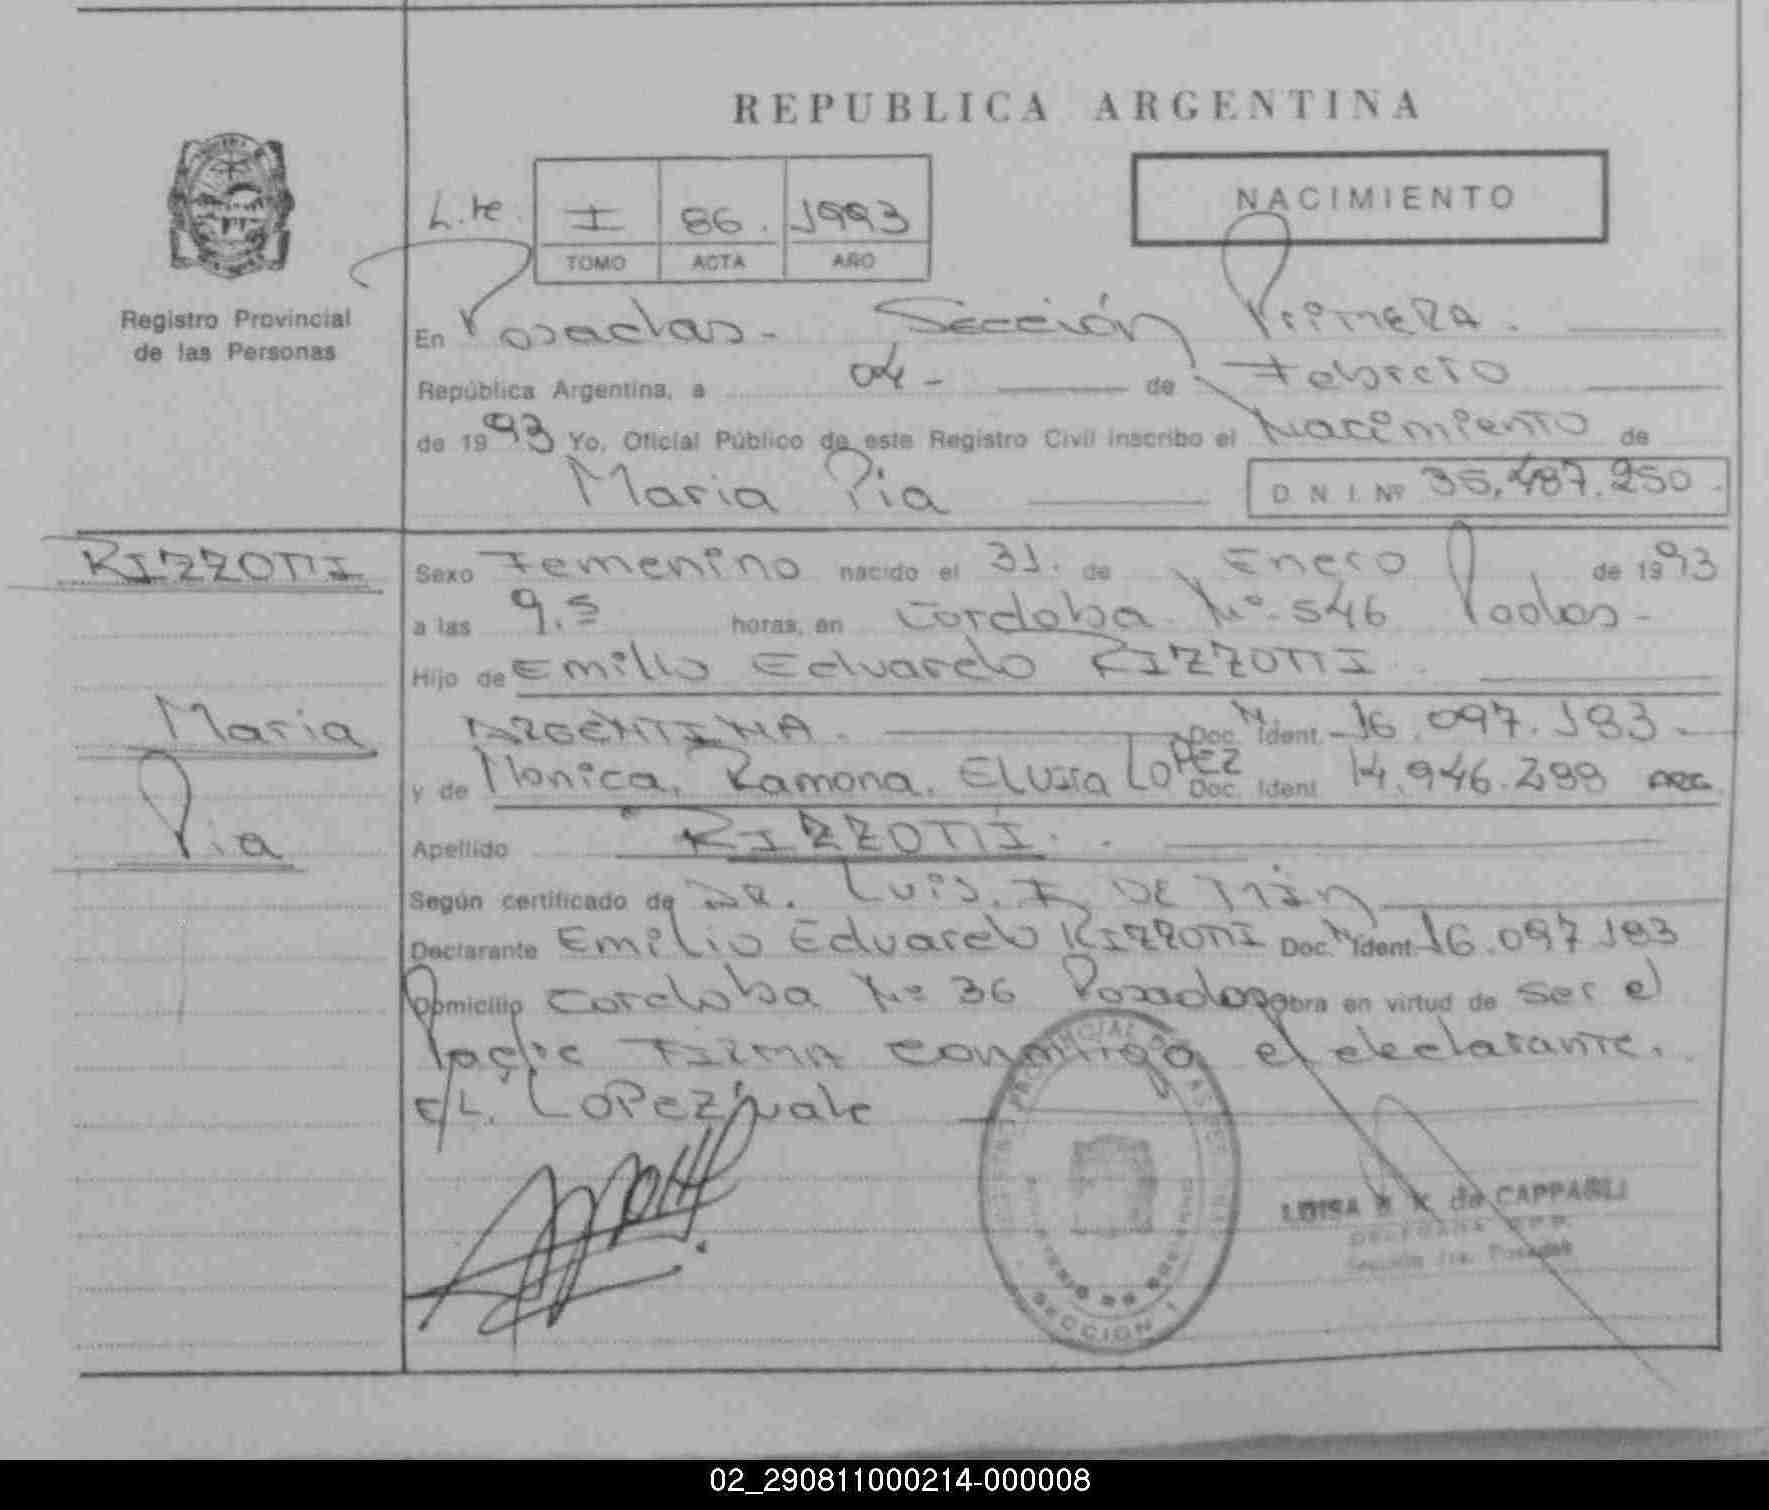 REPUBLICA ARGENTINA
NACIMIENTO
L. te. I 86. 1993
TOMO ACTA AÑO
Registro Provincial
de las Personas
En Posadas - Sección Primera.
República Argentina, a 04 - de Febrero
de 1993 Yo, Oficial Público de este Registro Civil inscribo el Nacimiento de
Maria Pia D. N. I. Nº 35.487.250.
RIZZOTTI
Maria
Pia
Sexo Femenino nacido el 31. de Enero de 1993
a las 9,5 horas, en Cordoba Nº 546 Posdas -
Hijo de Emilio Eduardo RIZZOTTI
ARGENTINA. Doc. N Ident. 16.097.193 -
y de Monica, Ramona, Eluisa LOPEZ Doc. Ident. 14.946.299 ARG.
Apellido RIZZOTTI.
Según certificado de DR. Luis. DE
Declarante Emilio Eduardo RIZZOTTI Doc. N Ident. 16.097.193
Domicilio Cordoba Nº 36 Posadas obra en virtud de ser el
Padre FIRMA conmigo el declarante.
E/L. LOPEZ vale
PROVINCIAL
MINISTERIO DE GOBIERNO
SECCION 1
LUISA de CAPPABLI
Sección 1ra. Posadas
02_290811000214-000008